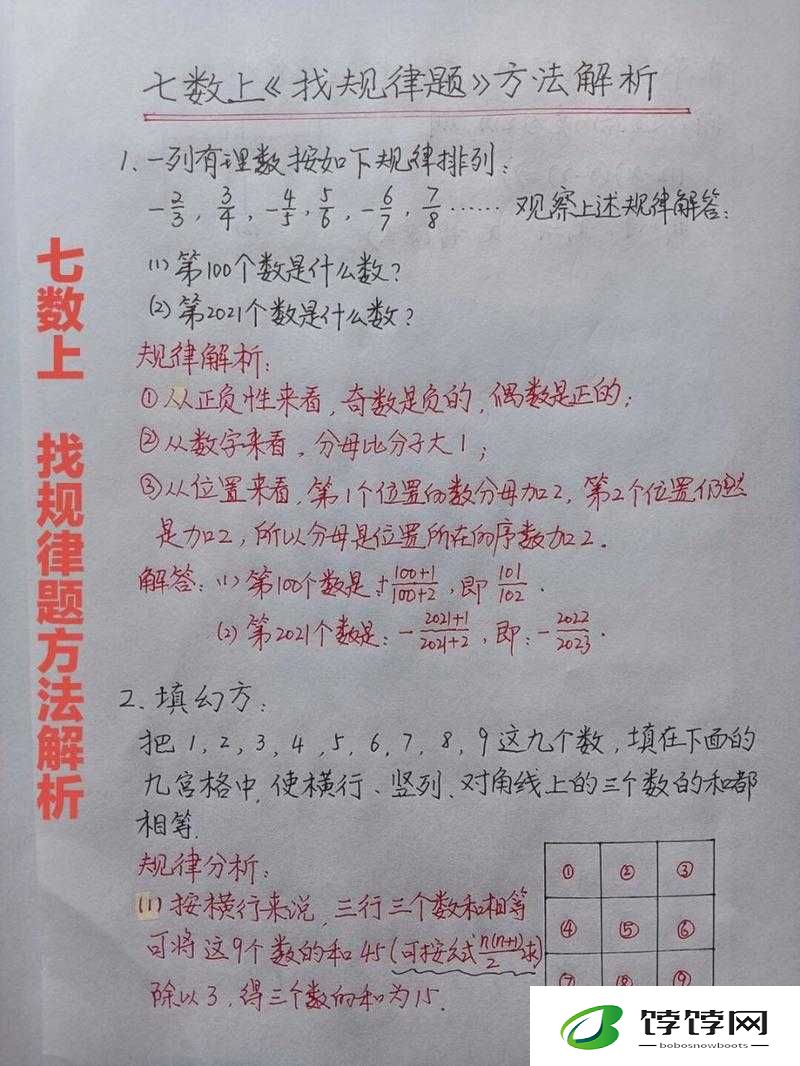 七数上《找规律题》方法解析
七数上 找规律题方法解析
1、一列有理数按如下规律排列：
-2/3, 3/4, -4/5, 5/6, -6/7, 7/8 …… 观察上述规律解答：
(1) 第100个数是什么数？
(2) 第2021个数是什么数？
规律解析：
①从正负性来看，奇数是负的，偶数是正的；
②从数字来看，分母比分子大1；
③从位置来看，第1个位置的数分母加2，第2个位置仍然
是加2，所以分母是位置所在的序数加2．
解答：(1) 第100个数是：+100+1/100+2，即 101/102．
(2) 第2021个数是：-2021+1/2021+2，即：-2022/2023．
2、填幻方：
把1，2，3，4，5，6，7，8，9这九个数，填在下面的
九宫格中，使横行、竖列、对角线上的三个数的和都
相等．
规律分析：
(1) 按横行来说，三行三个数和相等
可将这9个数的和45(可按公式n(n+1)/2求)
除以3，得三个数的和为15．
① ② ③
④ ⑤ ⑥
⑦ ⑧ ⑨
饽饽网
bobosnowboots